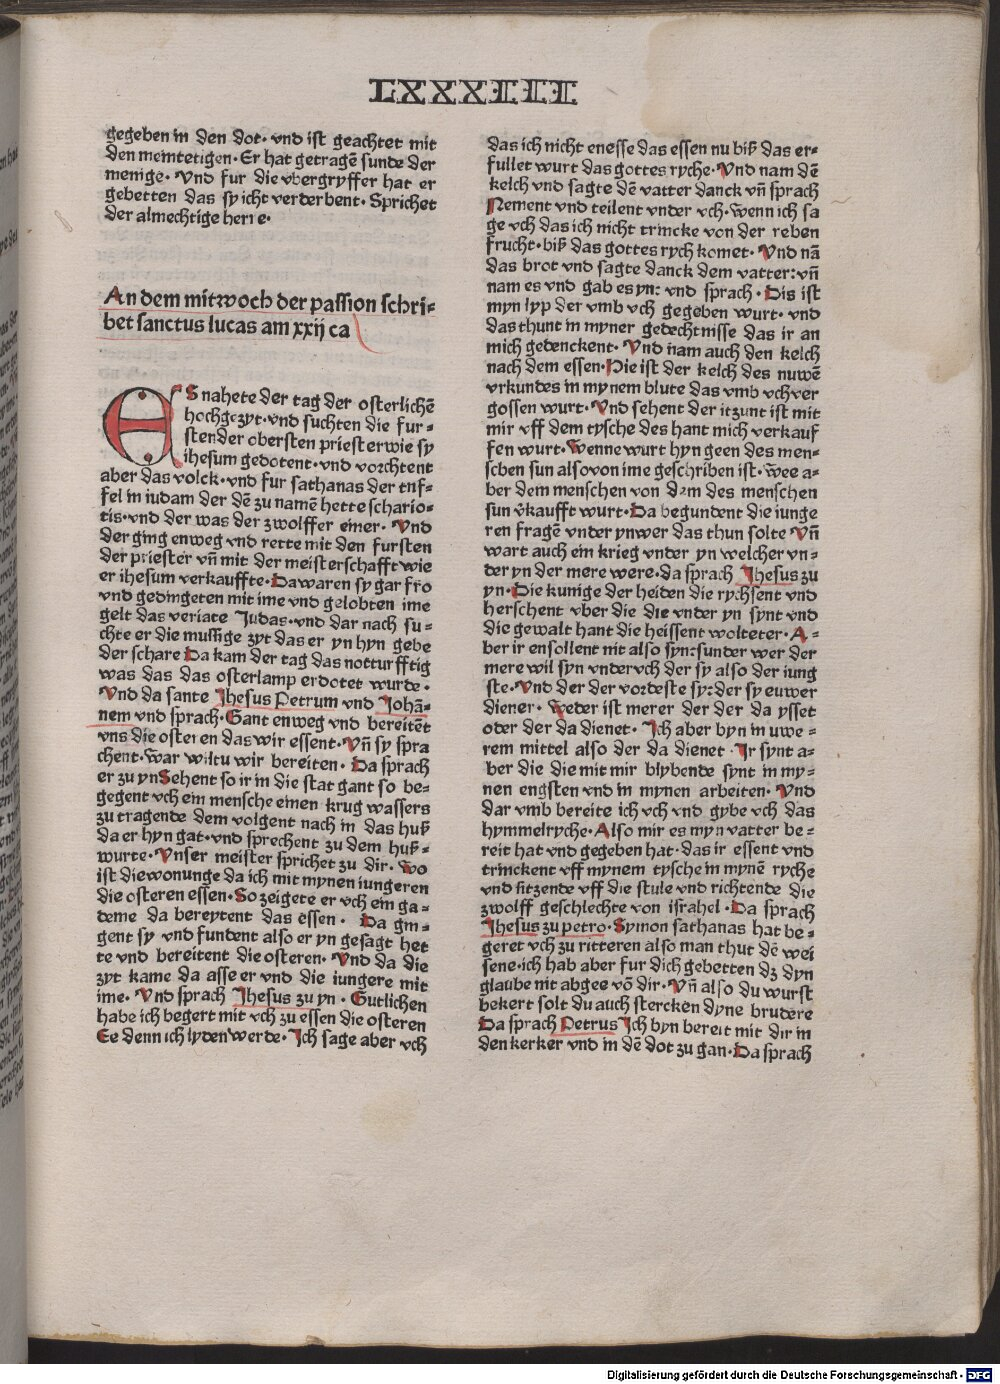 LXXXIIII
gegeben in den dot· vnd ist geachtet mit
den meintetigen· Er hat getragē sunde der
menige· Vnd fur die vbergryffer hat er
gebetten das sy icht verderbent· Sprichet
der almechtige herre·
An dem mitwoch der passion schri⸗
bet sanctus lucas am xxij ca
ES nahete der tag der osterlichē
hochgezyt· vnd suchten die fur⸗
sten der obersten priester wie sy
ihesum gedotent· vnd vorchtent
aber das volck· vnd fur sathanas der tuf⸗
fel in iudam der dē zu namē hette schario⸗
tis· vnd der was der zwolffer einer· Vnd
der ging enweg vnd rette mit den fursten
der priester vn̄ mit der meisterschafft wie
er ihesum verkauffte· Da waren sy gar fro
vnd gedingeten mit ime vnd gelobten ime
gelt das veriate Judas· vnd dar nach su⸗
chte er die mussige zyt das er yn hyn gebe
der schare Da kam der tag das notturfftig
was das das osterlamp erdotet wurde·
Vnd da sante Jhesus Petrum vnd Johā⸗
nem vnd sprach· Gant enweg vnd bereitēt
vns die osteren das wir essent· Vn̄ sy spra
chent· War wiltu wir bereiten· Da sprach
er zu yn Sehent so ir in die stat gant so be⸗
gegent vch ein mensche einen krug wassers
zu tragende dem volgent nach in das huß
da er hyn gat· vnd sprechent zu dem huß⸗
wurte· Vnser meister sprichet zu dir· Wo
ist die wonunge da ich mit mynen iungeren
die osteren essen· So zeigete er vch ein ga⸗
deme da bereytent das essen· Da gin⸗
gent sy vnd fundent also er yn gesagt het
te vnd bereitent die osteren· Vnd da die
zyt kame da asse er vnd die iungere mit
ime· Vnd sprach Jhesus zu yn· Gutlichen
habe ich begert mit vch zu essen die osteren
Ee denn ich lyden werde· Ich sage aber vch
das ich nicht enesse das essen nu biß das er⸗
fullet wurt das gottes ryche· Vnd nam dē
kelch vnd sagte dē vatter danck vn̄ sprach
Nement vnd teilent vnder vch· wenn ich sa
ge vch das ich nicht trincke von der reben
frucht· biß das gottes rych komet· Vnd nā
das brot vnd sagte danck dem vatter: vn̄
nam es vnd gab es yn: vnd sprach· Dis ist
myn lyp der vmb vch gegeben wurt· vnd
das thunt in myner gedechtnisse das ir an
mich gedenckent· Vnd nam auch den kelch
nach dem essen· Hie ist der kelch des nuwē
vrkundes in mynem blute das vmb vch ver
gossen wurt· Vnd sehent der itzunt ist mit
mir vff dem tysche des hant mich verkauf
fen wurt· Wenne wurt hyn geen des men⸗
schen sun also von ime geschriben ist· wee a⸗
ber dem menschen von dem des menschen
sun v̄kaufft wurt· Da begundent die iunge
ren fragē vnder yn wer das thun solte· Vn̄
wart auch ein krieg vnder yn welcher vn⸗
der yn der mere were· da sprach Jhesus zu
yn· Die kunige der heiden die rychsent vnd
herschent vber die die vnder yn synt vnd
die gewalt hant die heissent wolteter· A⸗
ber ir ensollent nit also syn: sunder wer der
mere wil syn vnder vch der sy also der iung
ste· Vnd der der vordeste sy: der sy euwer
diener· Weder ist merer der der da ysset
oder der da dienet· Ich aber byn in uwe⸗
rem mittel also der da dienet· Ir synt a⸗
ber die die mit mir blybende synt in my⸗
nen engsten vnd in mynen arbeiten· Vnd
dar vmb bereite ich vch vnd gybe vch das
hymmelryche· Also mir es myn vatter be⸗
reit hat vnd gegeben hat· das ir essent vnd
trinckent vff mynem tysche in mynē ryche
vnd sitzende vff die stule vnd richtende die
zwolff geschlechte von israhel· Da sprach
Jhesus zu petro· Symon sathanas hat be⸗
geret vch zu ritteren also man thut dē wei
sene· ich hab aber fur dich gebetten dz dyn
glaube nit abgee vō dir· Vn̄ also du wurst
bekert solt du auch stercken dyne brudere
Da sprach Petrus Ich byn bereit mit dir in
den kerker vnd in dē dot zu gan· Da sprach
Digitalisierung gefördert durch die Deutsche Forschungsgemeinschaft - DFG